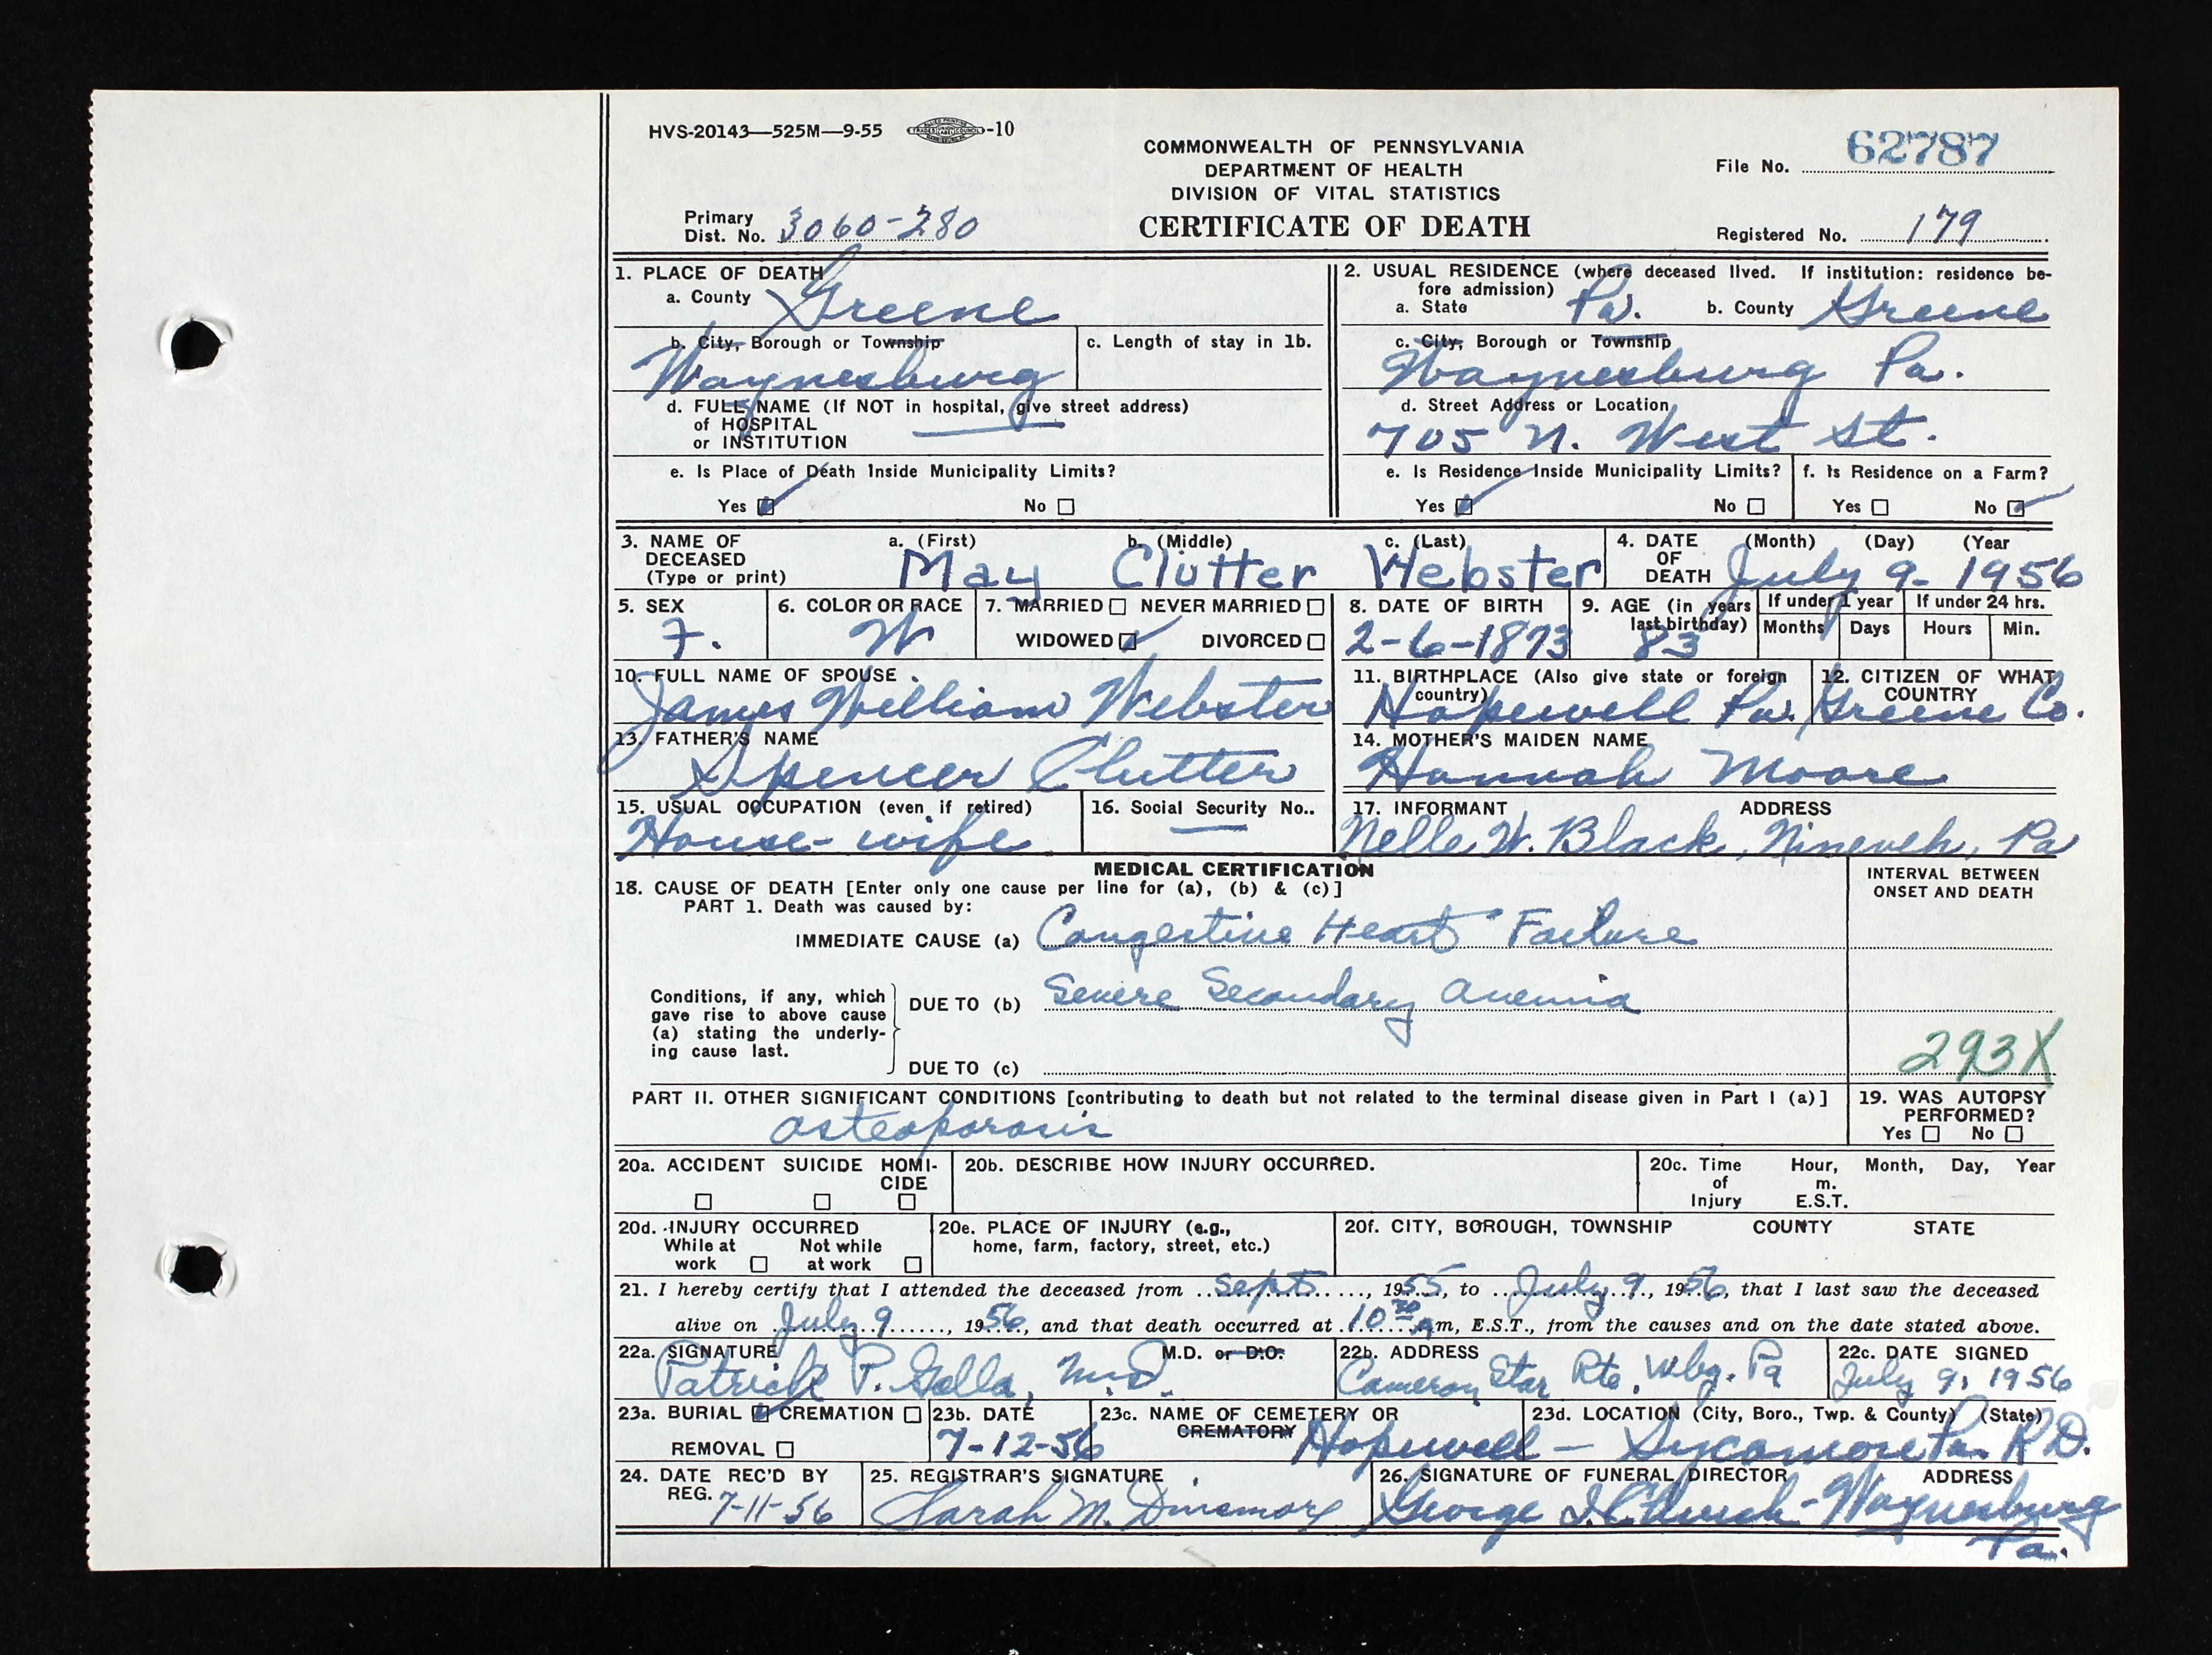 HVS-20143—525M—9-55 -10
COMMONWEALTH OF PENNSYLVANIA
DEPARTMENT OF HEALTH
DIVISION OF VITAL STATISTICS
CERTIFICATE OF DEATH
File No. 62787
Primary
Dist. No. 3060-280
Registered No. 179
1. PLACE OF DEATH
a. County Greene
b. City, Borough or Township
Waynesburg
c. Length of stay in 1b.
d. FULL NAME (If NOT in hospital, give street address)
of HOSPITAL
or INSTITUTION
e. Is Place of Death Inside Municipality Limits?
Yes No
2. USUAL RESIDENCE (where deceased lived. If institution: residence be-
fore admission)
a. State Pa. b. County Greene
c. City, Borough or Township
Waynesburg Pa.
d. Street Address or Location
705 N. West St.
e. Is Residence Inside Municipality Limits?
Yes No
f. Is Residence on a Farm?
Yes No
3. NAME OF
DECEASED
(Type or print)
a. (First) b. (Middle) c. (Last)
May Clutter Webster
4. DATE
OF
DEATH
(Month) (Day) (Year
July 9- 1956
5. SEX
F.
6. COLOR OR RACE
W
7. MARRIED NEVER MARRIED
WIDOWED DIVORCED
8. DATE OF BIRTH
2-6-1873
9. AGE (in years
last birthday)
83
If under 1 year If under 24 hrs.
Months Days Hours Min.
10. FULL NAME OF SPOUSE
James William Webster
11. BIRTHPLACE (Also give state or foreign
country)
Hopewell Pa.
12. CITIZEN OF WHAT
COUNTRY
Greene Co.
13. FATHER'S NAME
Spencer Clutter
14. MOTHER'S MAIDEN NAME
Hannah Moore
15. USUAL OCCUPATION (even if retired)
House-wife
16. Social Security No..
17. INFORMANT ADDRESS
Nelle W. Black, Nineveh, Pa
MEDICAL CERTIFICATION
18. CAUSE OF DEATH [Enter only one cause per line for (a), (b) & (c)]
PART 1. Death was caused by:
INTERVAL BETWEEN
ONSET AND DEATH
IMMEDIATE CAUSE (a) Congestive Heart Failure
Conditions, if any, which
gave rise to above cause
(a) stating the underly-
ing cause last.
DUE TO (b) Severe Secondary Anemia
DUE TO (c)
293X
PART II. OTHER SIGNIFICANT CONDITIONS [contributing to death but not related to the terminal disease given in Part I (a)]
osteoporosis
19. WAS AUTOPSY
PERFORMED?
Yes No
20a. ACCIDENT SUICIDE HOMI-
CIDE
20b. DESCRIBE HOW INJURY OCCURRED.
20c. Time
of
Injury
Hour, Month, Day, Year
m.
E.S.T.
20d. INJURY OCCURRED
While at
work
Not while
at work
20e. PLACE OF INJURY (e.g.,
home, farm, factory, street, etc.)
20f. CITY, BOROUGH, TOWNSHIP COUNTY STATE
21. I hereby certify that I attended the deceased from Sept, 1955, to July 9, 1956, that I last saw the deceased
alive on July 9, 1956, and that death occurred at 10 30 am, E.S.T., from the causes and on the date stated above.
22a. SIGNATURE M.D. or D.O.
Patrick P. Golla, M.D.
22b. ADDRESS
Cameron Star Rte, Wbg. Pa
22c. DATE SIGNED
July 9, 1956
23a. BURIAL CREMATION
REMOVAL
23b. DATE
7-12-56
23c. NAME OF CEMETERY OR
CREMATORY
Hopewell —
23d. LOCATION (City, Boro., Twp. & County) (State)
Sycamore Pa. R.D.
24. DATE REC'D BY
REG. 7-11-56
25. REGISTRAR'S SIGNATURE
Sarah M. Dinsmore
26. SIGNATURE OF FUNERAL DIRECTOR ADDRESS
George - Waynesburg
Pa.